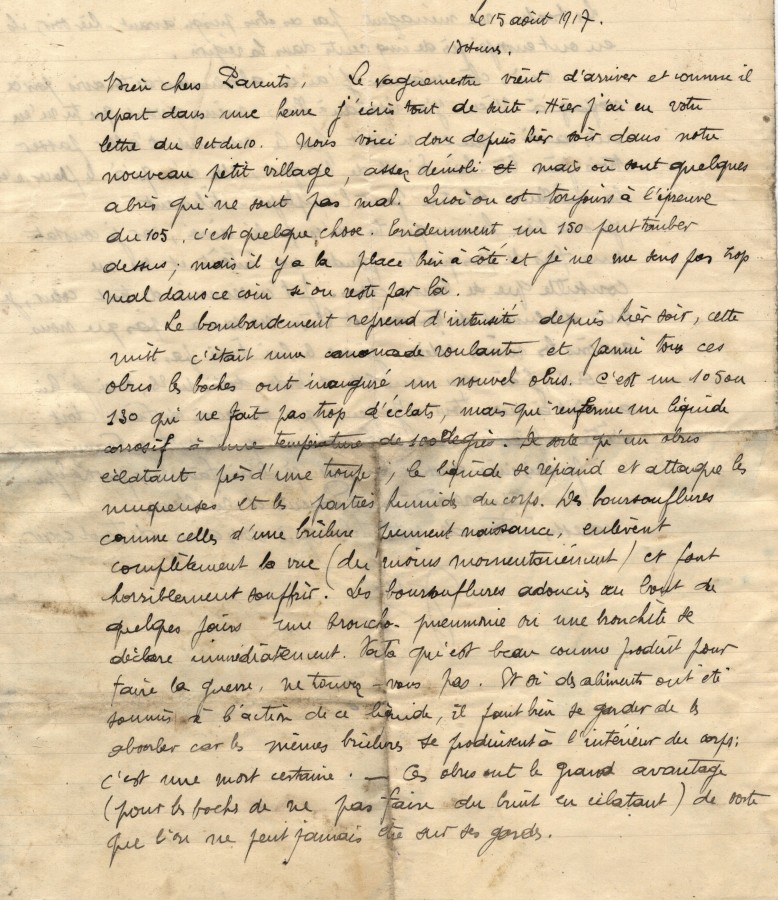 Le 15 août 1917.
13 heures.
Bien chers Parents, Le vaguemestre vient d'arriver et comme il
repart dans une heure j'écris tout de suite. Hier j'ai eu votre
lettre du 9 et du 10. Nous voici donc depuis hier soir dans notre
nouveau petit village, assez démoli et mais où sont quelques
abris qui ne sont pas mal. Quoi on est toujours à l'épreuve
du 105, c'est quelque chose. Evidemment un 150 peut tomber
dessus, mais il y a la place bien à côté et je ne me sens pas trop
mal dans ce coin si on reste par là.
Le bombardement reprend d'intensité depuis hier soir, cette
nuit c'était une canonade roulante et parmi tous ces
obus les boches ont inauguré un nouvel obus. C'est un 105 ou
130 qui ne fait pas trop d'éclats, mais qui renferme un liquide
corrosif à une température de degrés. De sorte qu'un obus
éclatant près d'une troupe, le liquide se répand et attaque les
muqueuses et les parties humides du corps. Des boursouflures
comme celles d'une brûlure prennent naissance, enlèvent
complètement la vue (du moins momentanément) et font
horriblement souffrir. Les boursouflures adoucies au bout de
quelques jours une broncho-pneumonie ou une bronchite se
déclare immédiatement. Voilà qui est beau comme produit pour
faire la guerre, ne trouvez-vous pas. Et si des aliments ont été
soumis à l'action de ce liquide, il faut bien se garder de les
absorber car les mêmes brûlures se produisent à l'intérieur du corps :
c'est une mort certaine. — Ces obus ont le grand avantage
(pour les bochs de ne pas faire du bruit en éclatant) de sorte
que l'on ne peut jamais être sur ses gardes.